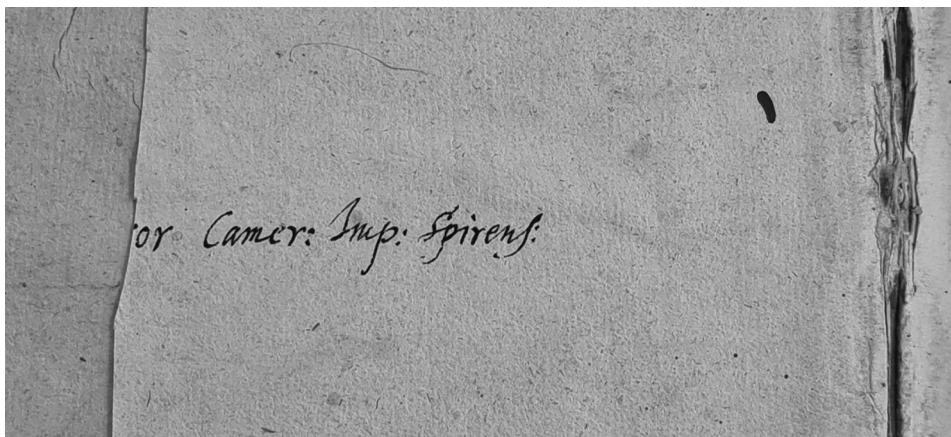 or Camer: Imp: Spirens: